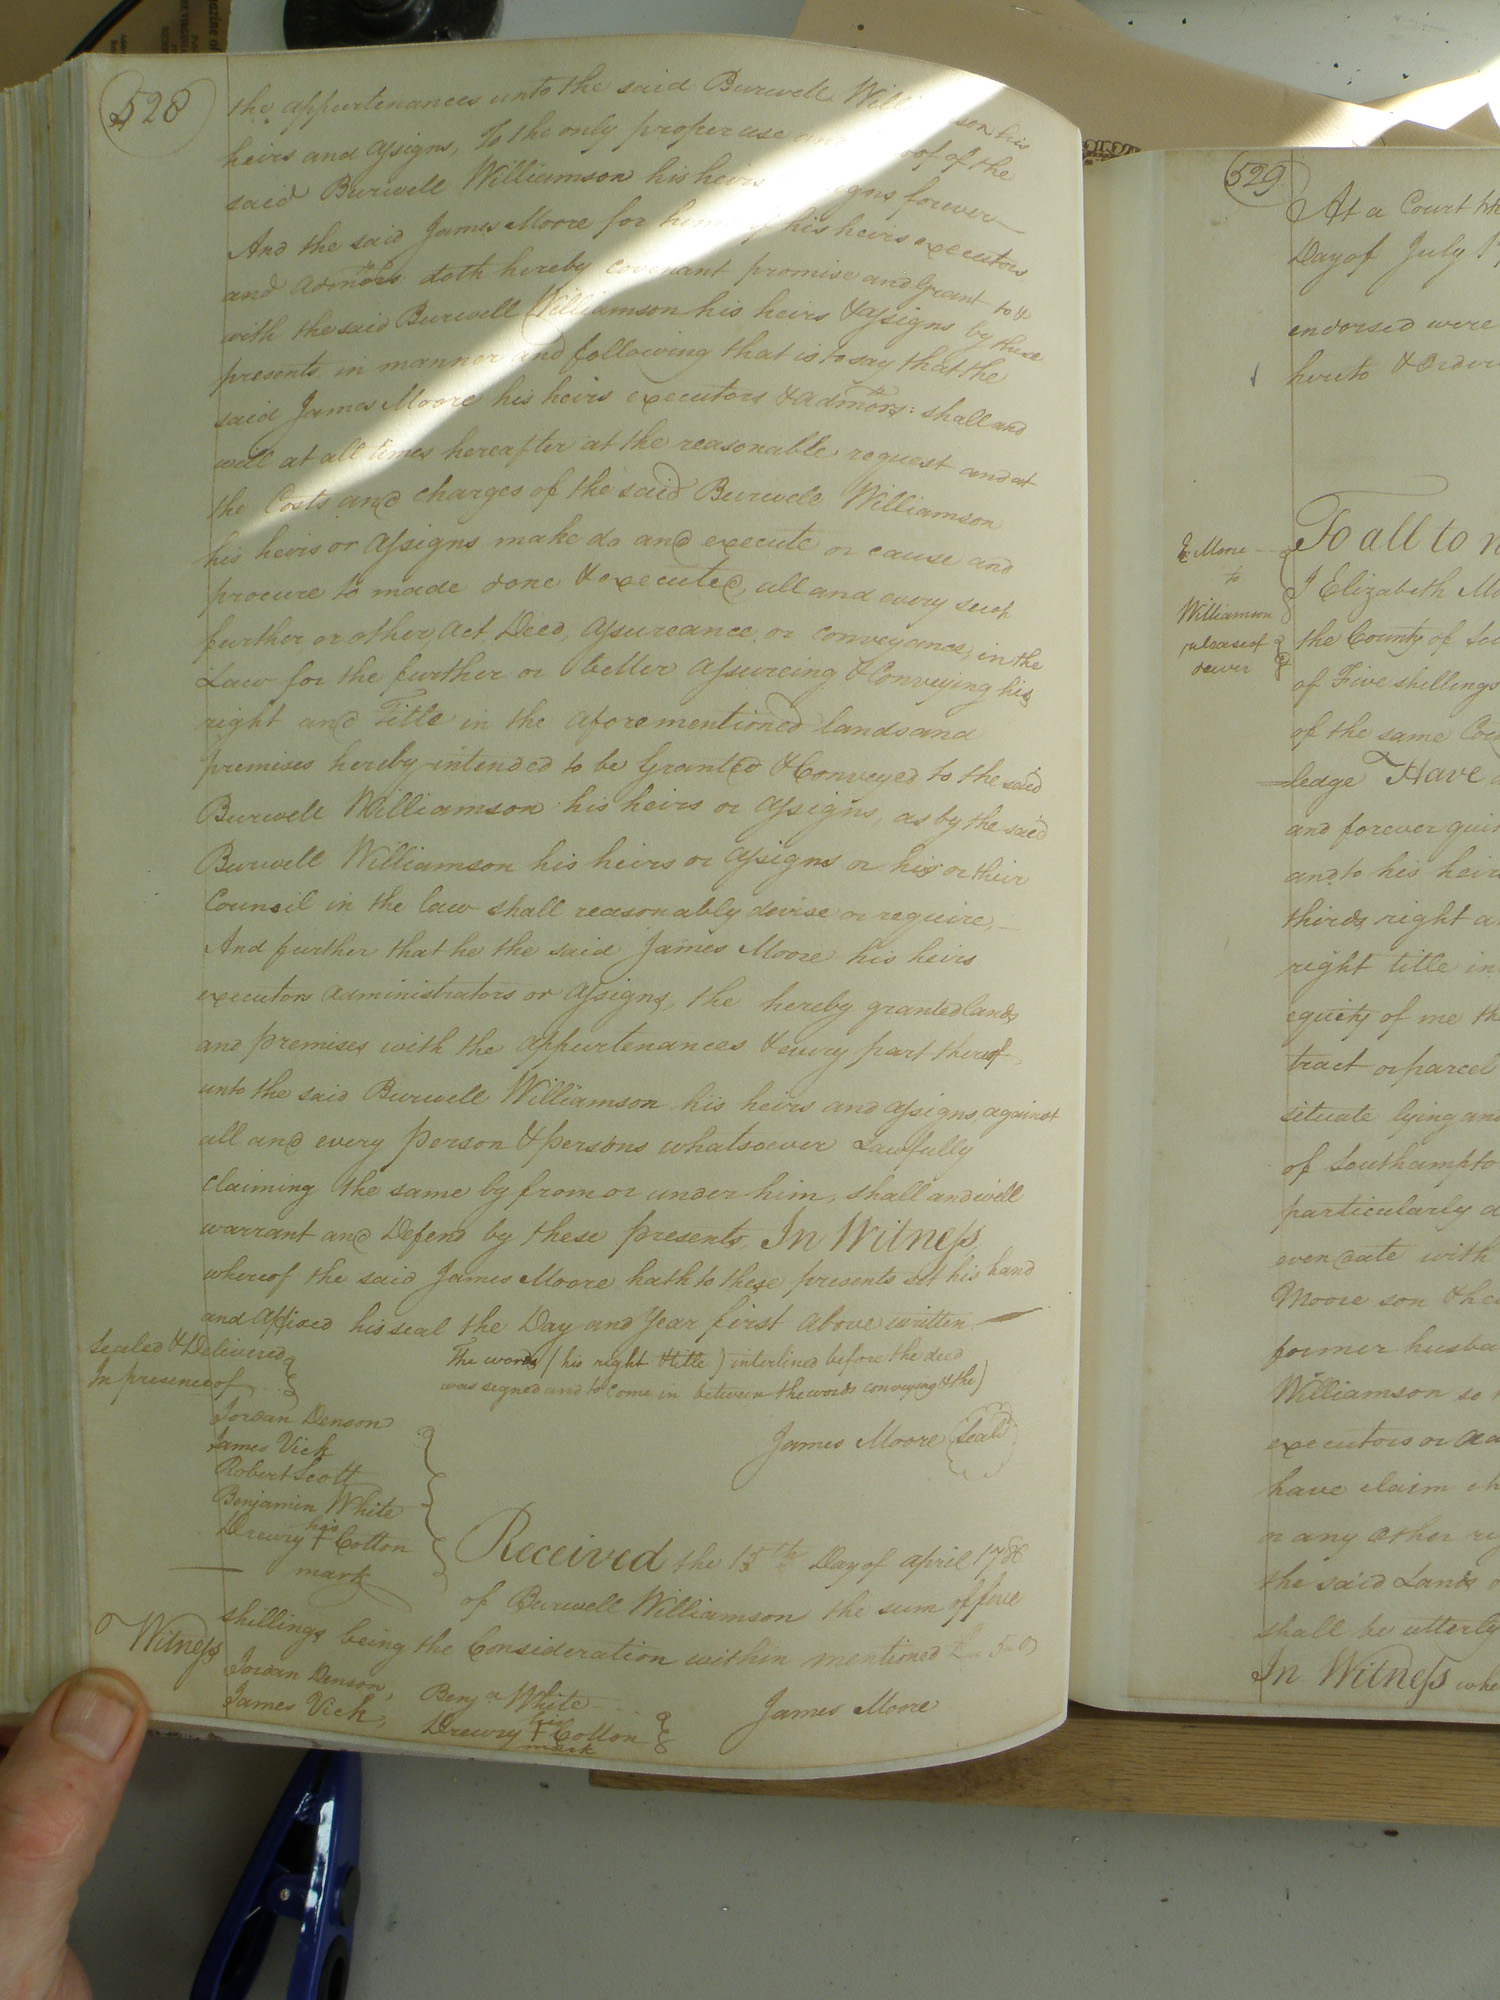 528
the appurtenances unto the said Burwell Williamson his
heirs and assigns, To the only proper use and behoof of the
said Burwell Williamson his heirs assigns forever
And the said James Moore for himself his heirs executors
and admors doth hereby covenant promise and Grant to &
with the said Burwell Williamson his heirs & assigns by these
presents in manner and following that is to say that the
said James Moore his heirs executors & admors: shall and
will at all times hereafter at the reasonable request and at
the Costs and charges of the said Burwell Williamson
his heirs or assigns make do and execute or cause and
procure to made done & executed, all and every such
further or other Act, Deed, assureance, or conveyance, in the
Law for the further or better assureing & Conveying his
right and Title in the aforementioned lands and
premises hereby intended to be Granted & Conveyed to the said
Burwell Williamson his heirs or assigns, as by the said
Burwell Williamson his heirs or assigns or his or their
Council in the law shall reasonably devise or require,
And further that he the said James Moore his heirs
executors administrators or assigns, the hereby granted lands
and premises with the appurtenances & every part thereof
unto the said Burwell Williamson his heirs and assigns, against
all and every person & persons whatsoever Lawfully
claiming the same by from or under him, shall and will
warrant and Defend by these presents, In Witness
whereof the said James Moore hath to these presents set his hand
and affixed his seal the Day and Year first above written
Sealed & Delivered
In presence of
The words (his right & title) interlined before the deed
was signed and to come in between the words conveying & the)
Jordan Denson
James Vick
Robert Scott
Benjamin White
Drewry his + Cotton
mark
James Moore Seal
Received the 13th Day of april 1786
of Burwell Williamson the sum of five
shillings being the Consideration within mentioned
Witness
Jordan Denson,
James Vick,
Benjn White
Drewry his + Cotton
mark
James Moore
529
At a Court
Day of July
endorsed were
hereto &
Moore
to
Williamson
release of
dower
To all to
I Elizabeth
the County of
of Five shillings
of the same
ledge Have
and forever
and to his heirs
thirds right
right title
equity of me
tract or parcel
situate lying and
of Southampton
particularly
even date with
Moore son & heir
former husband
Williamson so
executors or
have claim
or any other
the said Lands
shall be utterly
In Witness